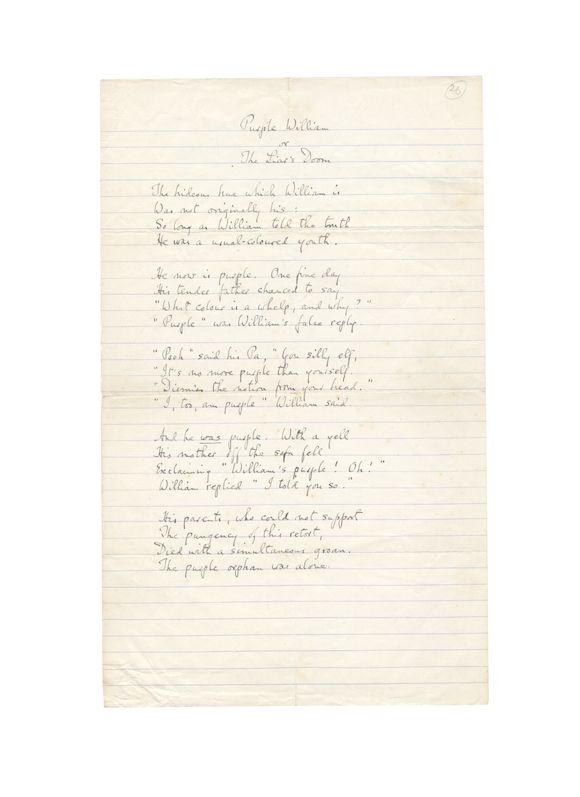 26
Purple William
or
The Liar's Doom
The hideous hue which William is
Was not originally his:
So long as William told the truth
He was a usual-coloured youth.
He now is purple. One fine day
His tender father chanced to say
"What colour is a whelp, and why?"
"Purple" was William's false reply.
"Pooh" said his Pa, "You silly elf,
"It's no more purple than yourself.
"Dismiss the notion from your head."
"I, too, am purple" William said.
And he was purple. With a yell
His mother off the sofa fell
Exclaiming "William's purple! Oh!"
William replied "I told you so."
His parents, who could not support
The pungency of this retort,
Died with a simultaneous groan.
The purple orphan was alone.